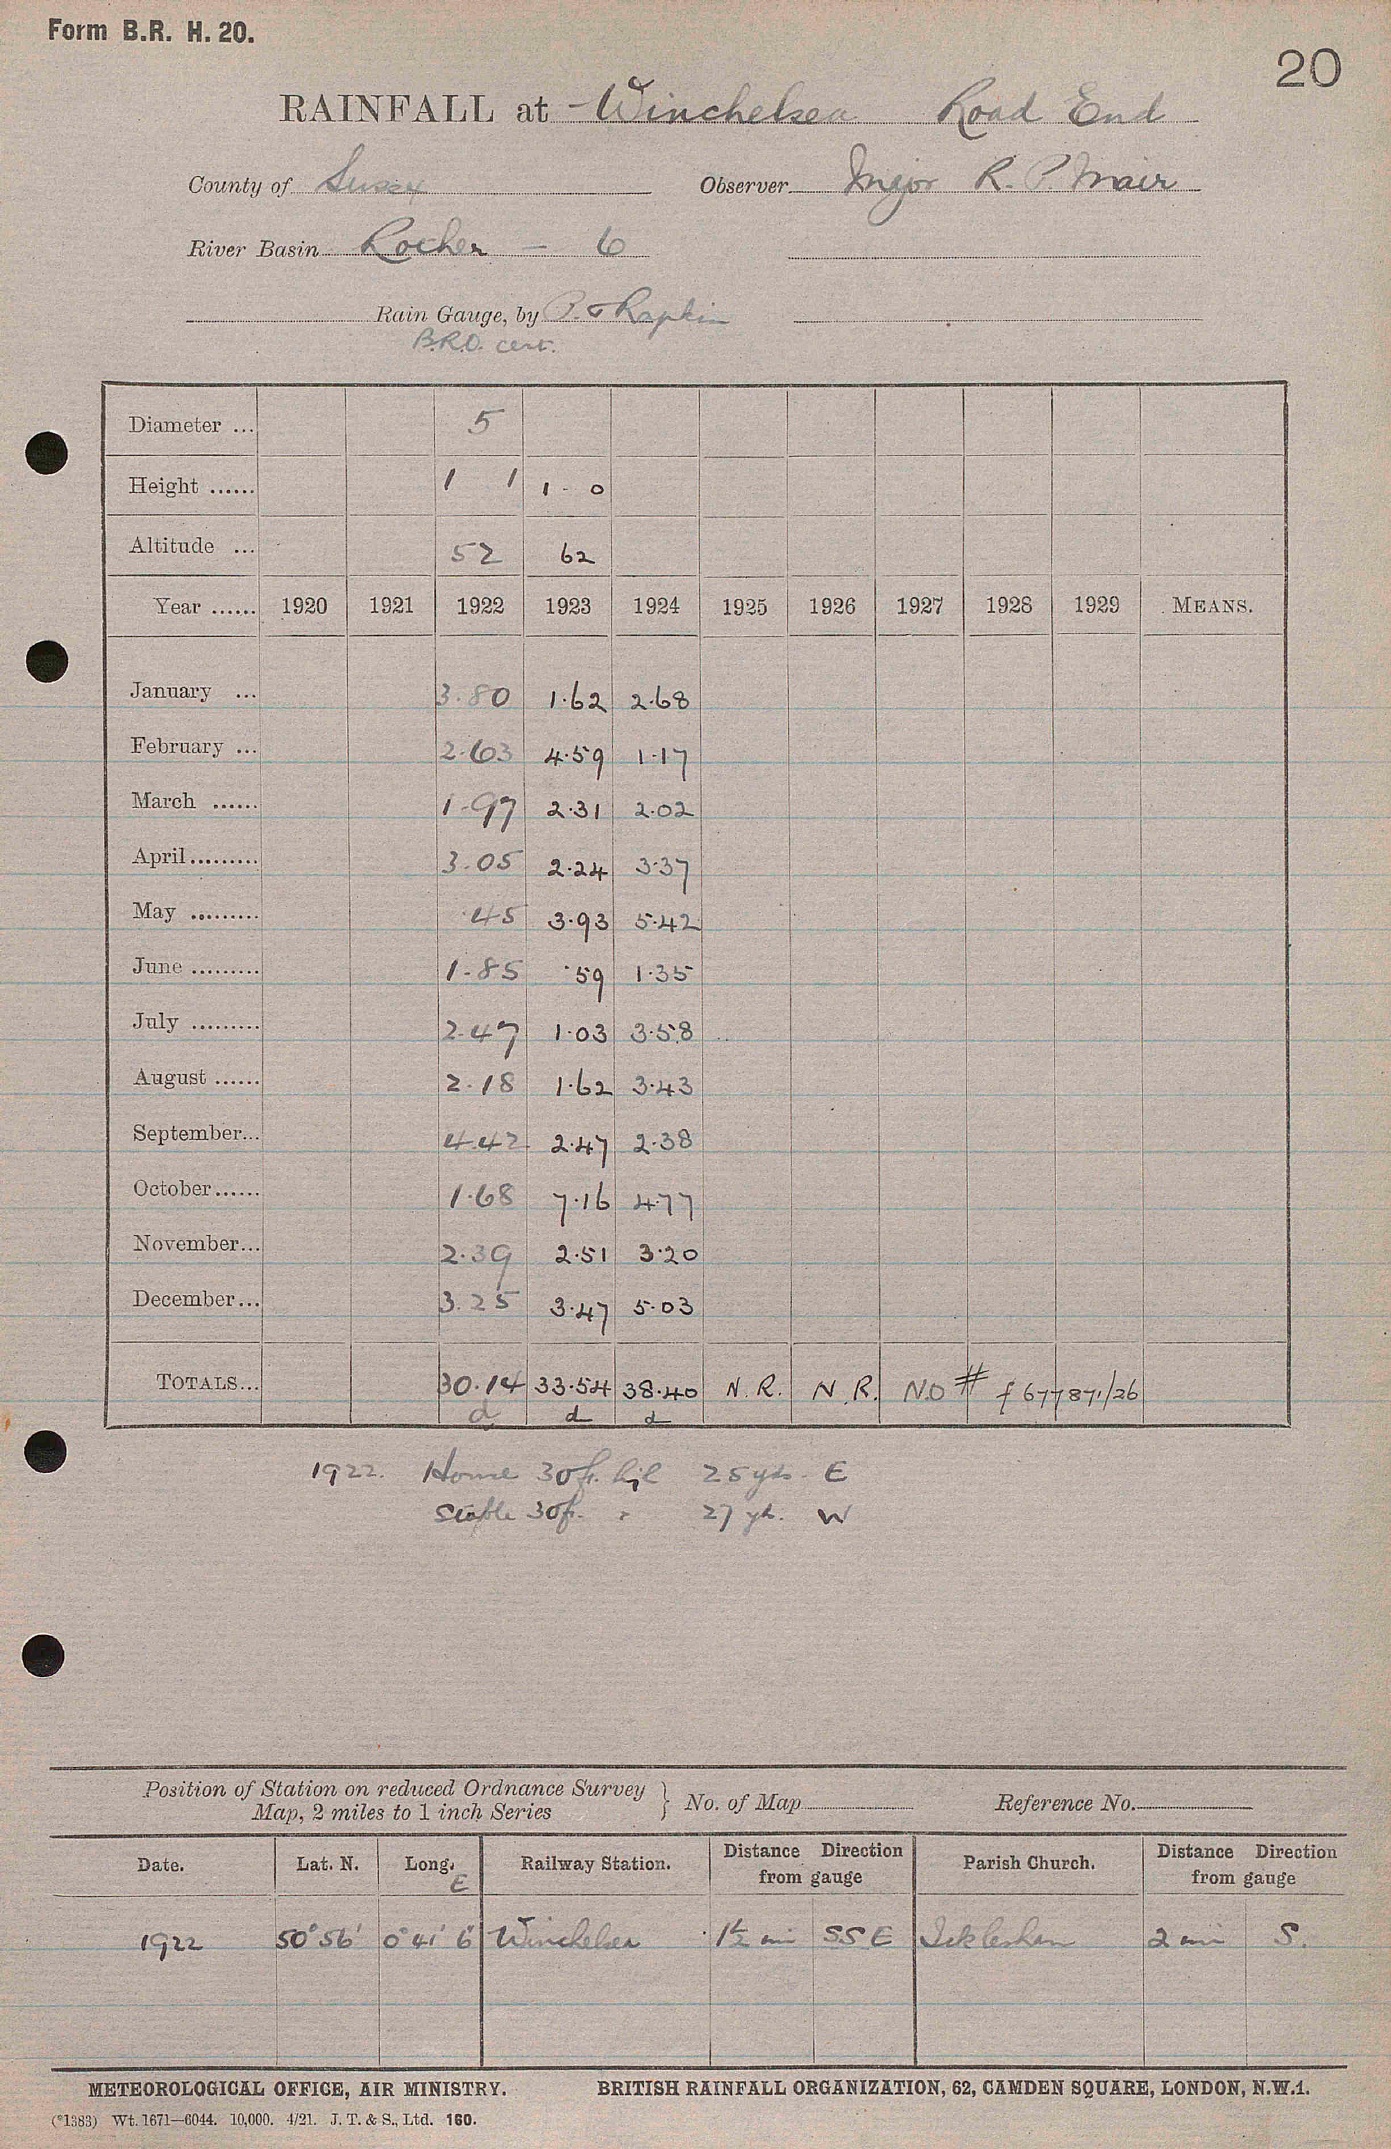 Form B.R. H. 20.
20
RAINFALL at Winchelsea Road End
County of Sussex Observer Major R. P. Mair
River Basin Rother - 6
Rain Gauge, by P. & Rapkin
B.R.O. cert.
Diameter ... 5
Height ...... 1 1 1 - 0
Altitude ... 52 62
Year ...... 1920 1921 1922 1923 1924 1925 1926 1927 1928 1929 MEANS.
January ... 3.80 1.62 2.68
February ... 2.63 4.59 1.17
March ...... 1.97 2.31 2.02
April ......... 3.05 2.24 3.37
May ......... .45 3.93 5.42
June ......... 1.85 .59 1.35
July ......... 2.47 1.03 3.58
August ...... 2.18 1.62 3.43
September... 4.42 2.47 2.38
October...... 1.68 7.16 4.77
November... 2.39 2.51 3.20
December... 3.25 3.47 5.03
TOTALS... 30.14 33.54 38.40 N.R. N.R. NO # f 677871/26
d d d
1922. House 30ft. high 25 yds. E
Stable 30ft. " 27 yds. W
Position of Station on reduced Ordnance Survey
Map, 2 miles to 1 inch Series } No. of Map Reference No.
Date. Lat. N. Long. E Railway Station. Distance Direction from gauge Parish Church. Distance Direction from gauge
1922 50° 56' 0° 41' 6" Winchelsea 1½ mi SSE Icklesham 2 mi S.
METEOROLOGICAL OFFICE, AIR MINISTRY. BRITISH RAINFALL ORGANIZATION, 62, CAMDEN SQUARE, LONDON, N.W.1.
(*1383) Wt. 1671—6044. 10,000. 4/21. J. T. & S., Ltd. 160.